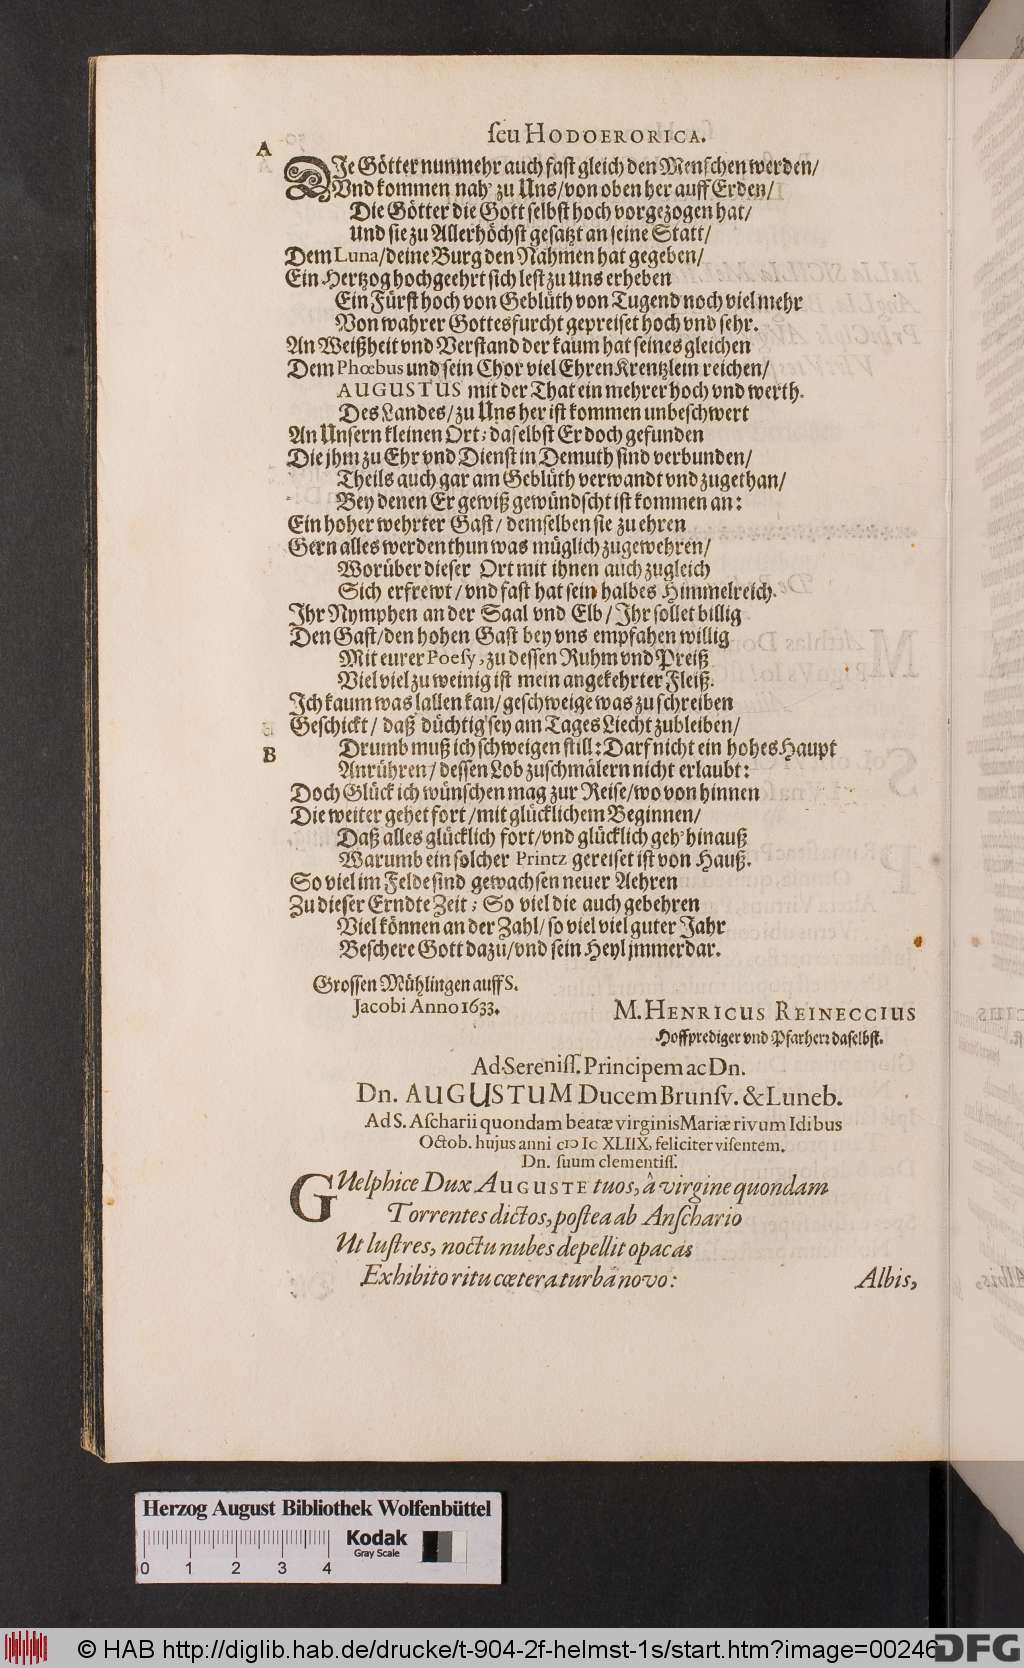 ſeu HODOERORICA.
A
DJe Götter nunmehr auch faſt gleich den Menſchen werden/
Vnd kommen nah' zu Uns/von oben her auff Erden/
Die Götter die Gott ſelbſt hoch vorgezogen hat/
Und ſie zu Allerhöchſt geſatzt an ſeine Statt/
Dem Luna/deine Burg den Nahmen hat gegeben/
Ein Hertzog hochgeehrt ſich leſt zu Uns erheben
Ein Fürſt hoch von Geblüth von Tugend noch viel mehr
Von wahrer Gottesfurcht gepreiſet hoch vnd ſehr.
An Weißheit vnd Verſtand der kaum hat ſeines gleichen
Dem Phœbus und ſein Chor viel Ehren Krentzlein reichen/
AUGUSTUS mit der That ein mehrer hoch vnd werth.
Des Landes/zu Uns her iſt kommen unbeſchwert
An Unſern kleinen Ort; daſelbſt Er doch gefunden
Die jhm zu Ehr vnd Dienſt in Demuth ſind verbunden/
Theils auch gar am Geblüth verwandt vnd zugethan/
Bey denen Er gewiß gewündſcht iſt kommen an:
Ein hoher wehrter Gaſt/ demſelben ſie zu ehren
Gern alles werden thun was müglich zugewehren/
Worüber dieſer Ort mit ihnen auch zugleich
Sich erfrewt/vnd faſt hat ſein halbes Himmelreich.
Jhr Nymphen an der Saal vnd Elb/Jhr ſollet billig
Den Gaſt/den hohen Gaſt bey vns empfahen willig
Mit eurer Poeſy, zu deſſen Ruhm vnd Preiß
Viel viel zu weinig iſt mein angekehrter Fleiß.
Jch kaum was lallen kan/geſchweige was zu ſchreiben
Geſchickt/ daß düchtig ſey am Tages Liecht zubleiben/
B
Drumb muß ich ſchweigen ſtill: Darf nicht ein hohes Haupt
Anrühren/deſſen Lob zuſchmälern nicht erlaubt:
Doch Glück ich wünſchen mag zur Reiſe/wo von hinnen
Die weiter gehet fort/mit glücklichem Beginnen/
Daß alles glücklich fort/vnd glücklich geh' hinauß
Warumb ein ſolcher Printz gereiſet iſt von Hauß.
So viel im Felde ſind gewachſen neuer Aehren
Zu dieſer Erndte Zeit; So viel die auch gebehren
Viel können an der Zahl/ſo viel viel guter Jahr
Beſchere Gott dazu/vnd ſein Heyl jmmerdar.
Groſſen Mühlingen auff S.
Jacobi Anno 1633.
M. HENRICUS REINECCIUS
Hoffprediger vnd Pfarherꝛ daſelbſt.
Ad Sereniſſ. Principem ac Dn.
Dn. AUGUSTUM Ducem Brunſv. & Luneb.
Ad S. Aſcharii quondam beatæ virginis Mariæ rivum Idibus
Octob. hujus anni cIɔ Ic XLIIX, feliciter viſentem.
Dn. ſuum clementiſſ.
GUelphice Dux AUGUSTE tuos, â virgine quondam
Torrentes dictos, poſtea ab Anſchario
Ut luſtres, noctu nubes depellit opacas
Exhibito ritu cœtera turba novo:
Albis,
Herzog August Bibliothek Wolfenbüttel
Kodak
Gray Scale
0 1 2 3 4
© HAB http://diglib.hab.de/drucke/t-904-2f-helmst-1s/start.htm?image=00246
DFG